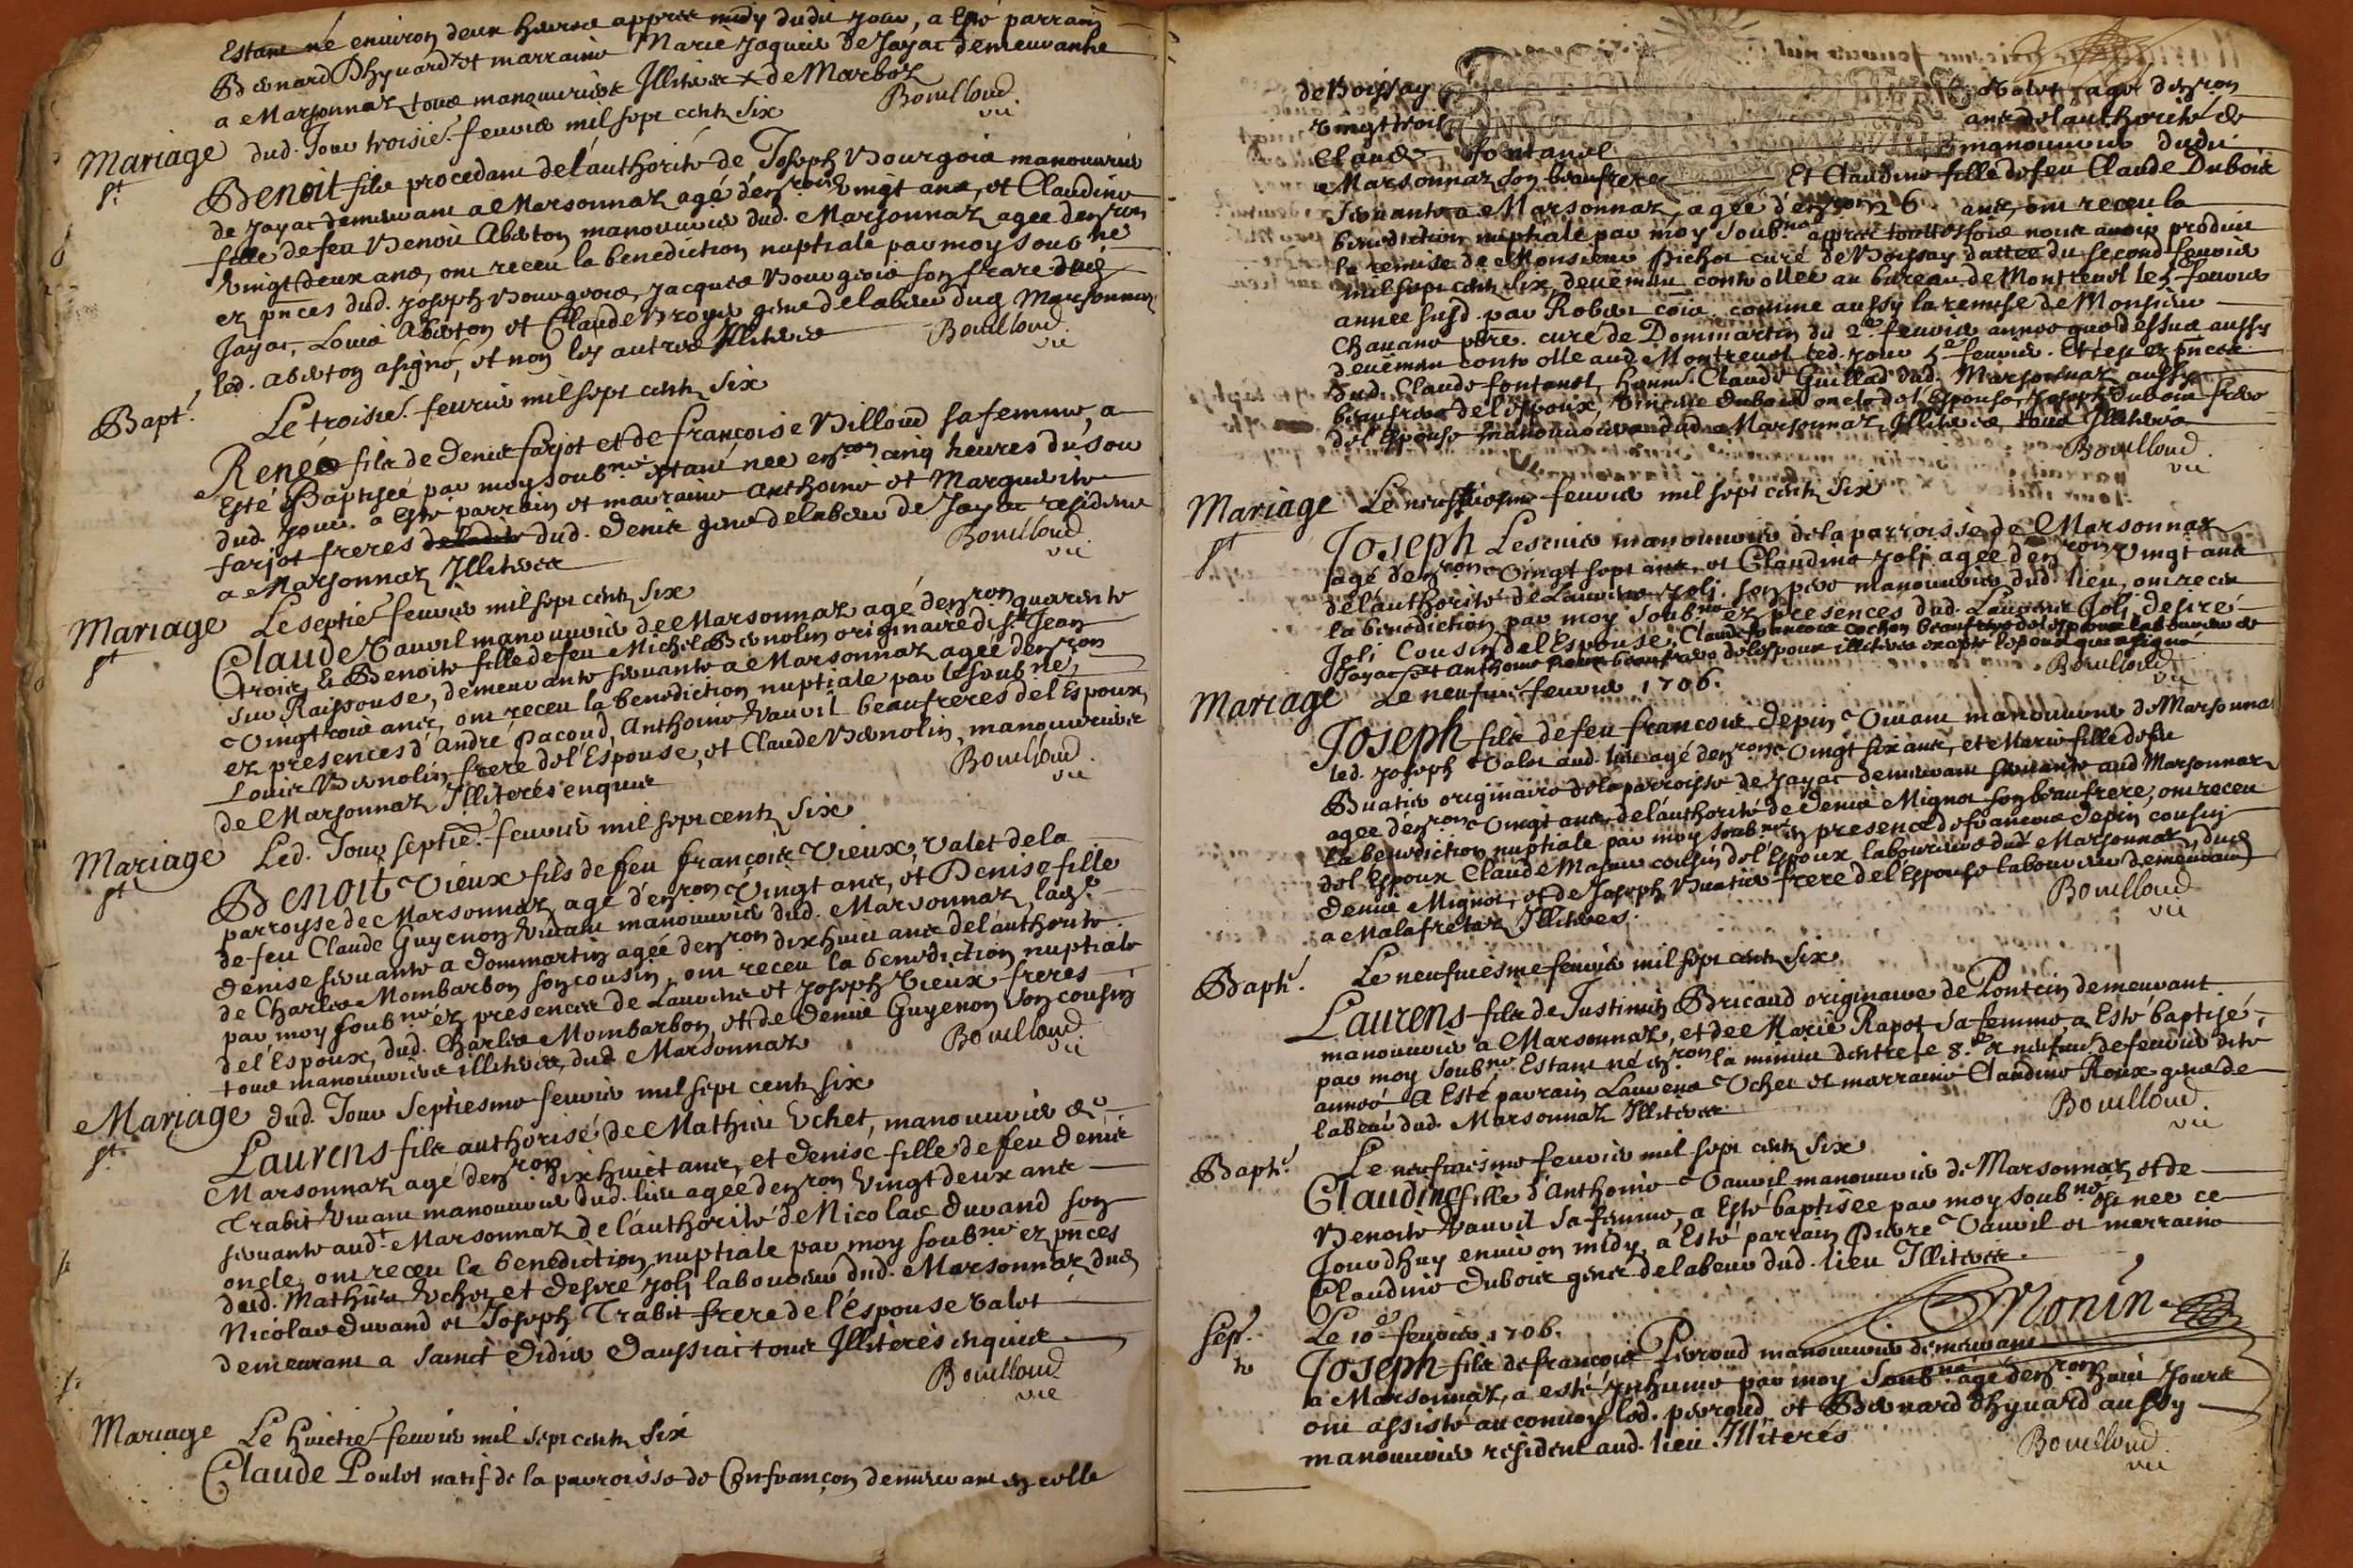 Estant né environ deux heures apprès midy dudit jour, a esté parrain
Bernard Dhyuard et marraine Marie Jaquier de Jayac demeurante
a Marsonnaz tous manouuriers Illiteres de Marboz
Bouilloud
vic
Mariage dud. Jour troisie. feuurier mil sept cents six
Benoit fils procedant de l'authorité de Joseph Bourgois manouurier
de Jayac demeurant a Marsonnaz agé d'enron vingt ans, et Claudine
fille de feu Benoit Abeton manouurier dud. Marsonnaz agee d'enron
vingt deux ans, ont receu la benediction nuptiale par moy soubné
ez pnces dud. Joseph Bourgeois, Jacques Bourgeois son frere dud.
Jayac, Louis Abeton et Claude Broyer gens de labeur dud. Marsonnaz
led. Abeton a signé, et non les autres Illiteres
Bouilloud
vic
Bapt. Le troisie. feurier mil sept cents six
Renée fille de Denis farjot et de françoise Villoud sa femme, a
Esté Baptisée par moy soubné estant née enron cinq heures du soir
dud. jour. a esté parrain et marraine anthoine et Marguerite
farjot freres dud. Denis gens de labeur de Jayac resident
a Marsonnaz Illiteres
Bouilloud
vic
Mariage Le septie. feurier mil sept cents six
Claude Vauvil manouurier de Marsonnaz agé d'enron quarente
trois, Et Benoite fille de feu Michel Bernolin originaire di St Jean
sur Raissouse, demeurante seruante a Marsonnaz ageé d'enron
Vingt trois ans, ont receu la benediction nuptiale par le soubné,
ez presences d'André Pacoud, Anthoine Vauvil beaufreres de l'Espoux,
Louis Bernolin frere de l'Espouse, et Claude Bernolin, manouuriers
de Marsonnaz Illiterés enquis
Bouilloud
vic
Mariage Led. Jour septie. feurier mil sept cents six
Benoit Vieux fils de feu françois Vieux, Valet de la
parroysse de Marsonnaz agé d'enron Vingt ans, et Denise fille
de feu Claude Guyenon Viuant manouurier dud. Marsonnaz, lad.
Denise seruante a Dommartin ageé d'enron dixhuict ans de l'authorité
de Charles Mombarbon son cousin, ont receu la benediction nuptiale
par moy soubné ez presences de Laurens et Joseph Vieux freres
de l'Espoux, dud. Charles Mombarbon, et de Denis Guyenon son cousin
tous manouuriers illiteres, dud. Marsonnaz
Bouilloud
vic
Mariage dud. Jour Septiesme feurier mil sept cents six
Laurens fils authorisé de Mathieu Uchet, manouurier de
Marsonnaz agé d'enron dixhuict ans, et Denise fille de feu Denis
Trabit Viuant manouurier dud. lieu agee d'enron Vingt deux ans
seruante aud. Marsonnaz de l'authorité de Nicolas Durand son
oncle, ont receu la benediction nuptiale par moy soubné ez pnces
dud. Mathieu Uchet et Desiré Joly laboureur dud. Marsonnaz dud.
Nicolas Durand et Joseph Trabit frere de l'Espouse Valet
demeurant a Sainct Didier Daussiat tous Illiterés enquis
Bouilloud
vic
Mariage Le huictie. feurier mil sept cents six
Claude Poulet natif de la parroisse de Confrançon demeurant en celle
de Boissay Valet agé d'enron
vingt trois ans de l'authorité de
Claude fontanel manouurier dudit
Marsonnaz son beaufrere Et Claudine fille de feu Claude Dubois
Seruante a Marsonnaz, agée d'enron 26 ans, ont receu la
benediction nuptiale par moy soubné apprès touttesfois nous auoir produit
la remise de Monsieur Pichot curé de Boissay dattée du second feurier
mil sept cent six, deuëment controllée au bureau de Montreuel le 5 feurier
année susd. par Robert coie. comme aussy la remise de Monsieur
Chauant pbre. curé de Dommartin du 2e feurier année que dessus aussy
deuëment controlle aud. Montreuel led. jour 5e feurier. Et ce ez pnces
dud. Claude fontanel, honn. Claude Guillad dud. Marsonnaz aussy
beaufrere de l'Espoux, Vincent Dubois oncle de l'Espouse, Joseph Dubois frere
de l'Espouse manouuriers dud. Marsonnaz, Illiteres
Bouilloud
vic
Mariage Le neufuiesme feurier mil sept cents six
Joseph Lescuier manouurier de la parroisse de Marsonnaz
agé d'enron Vingt sept ans, et Claudine Joli agée d'enron vingt ans
de l'authorité de Laurens Joli son pere manouurier dud. lieu, ont receu
la benediction par moy soubné ez presences dud. Laurens Joli, desiré
Joli Cousin de l'Espouse, Claude françois cochon beaufrere de l'espoux laboureur de
Jayac et Anthoine beaufrere de l'espoux illiteres excepté l'epoux qui a signé
Bouilloud
vic
Mariage Le neufuie. feurier 1706.
Joseph fils de feu francois Depin Viuant manouurier de Marsonnaz
led. Joseph Valet aud. lieu agé d'enron Vingt six ans, et Marie fille de feu
Buatier originaire de la parroisse de Jayac demeurant seruante aud Marsonnaz
agee d'enron Vingt ans, de l'authorité de Denis Mignot son beaufrere, ont receu
la benediction nuptiale par moy soubné en presence de francois Depin cousin
de l'Espoux Claude Masuir cousin de l'Espoux laboureurs dud Marsonnaz, dud.
Denis Mignot, et de Joseph Buatier frere de l'Espouse laboureur demeurant
a Malafretaz Illiteres.
Bouilloud
vic
Bapt. Le neufuiesme feurier mil sept cents six
Laurens fils de Justinien Bricaud originaire de Pontcin demeurant
manouurier a Marsonnaz, et de Marie Rapot sa femme, a Esté baptisé
par moy soubné. Estant né enron la minuit d'entre le 8. et neufuie. de feurier dite
année a Esté parrain Laurens Uchet et marraine Claudine Roux gens de
labeur dud. Marsonnaz Illiteres
Bouilloud
vic
Bapt. Le neufuiesme feurier mil sept cents six
Claudine fille d'Anthoine Vauvil manouurier de Marsonnaz et de
Benoite Vauvil sa femme, a Esté baptisée par moy soubné est nee ce
Jourdhuy enuiron midy, a Esté parrain Pierre Vauvil et marraine
Claudine Dubois gens de labeur dud. lieu Illiteres.
Monin
Sep.re Le 10e feurier 1706.
Joseph fils de françois Perroud manouurier demeurant
a Marsonnaz, a esté Inhumé par moy Soubné agé d'enron huit Jours
ont assisté au conuoy led. perroud et Bernard Dhyuard aussy
manouurier resident aud. lieu Illiterés
Bouilloud
vic